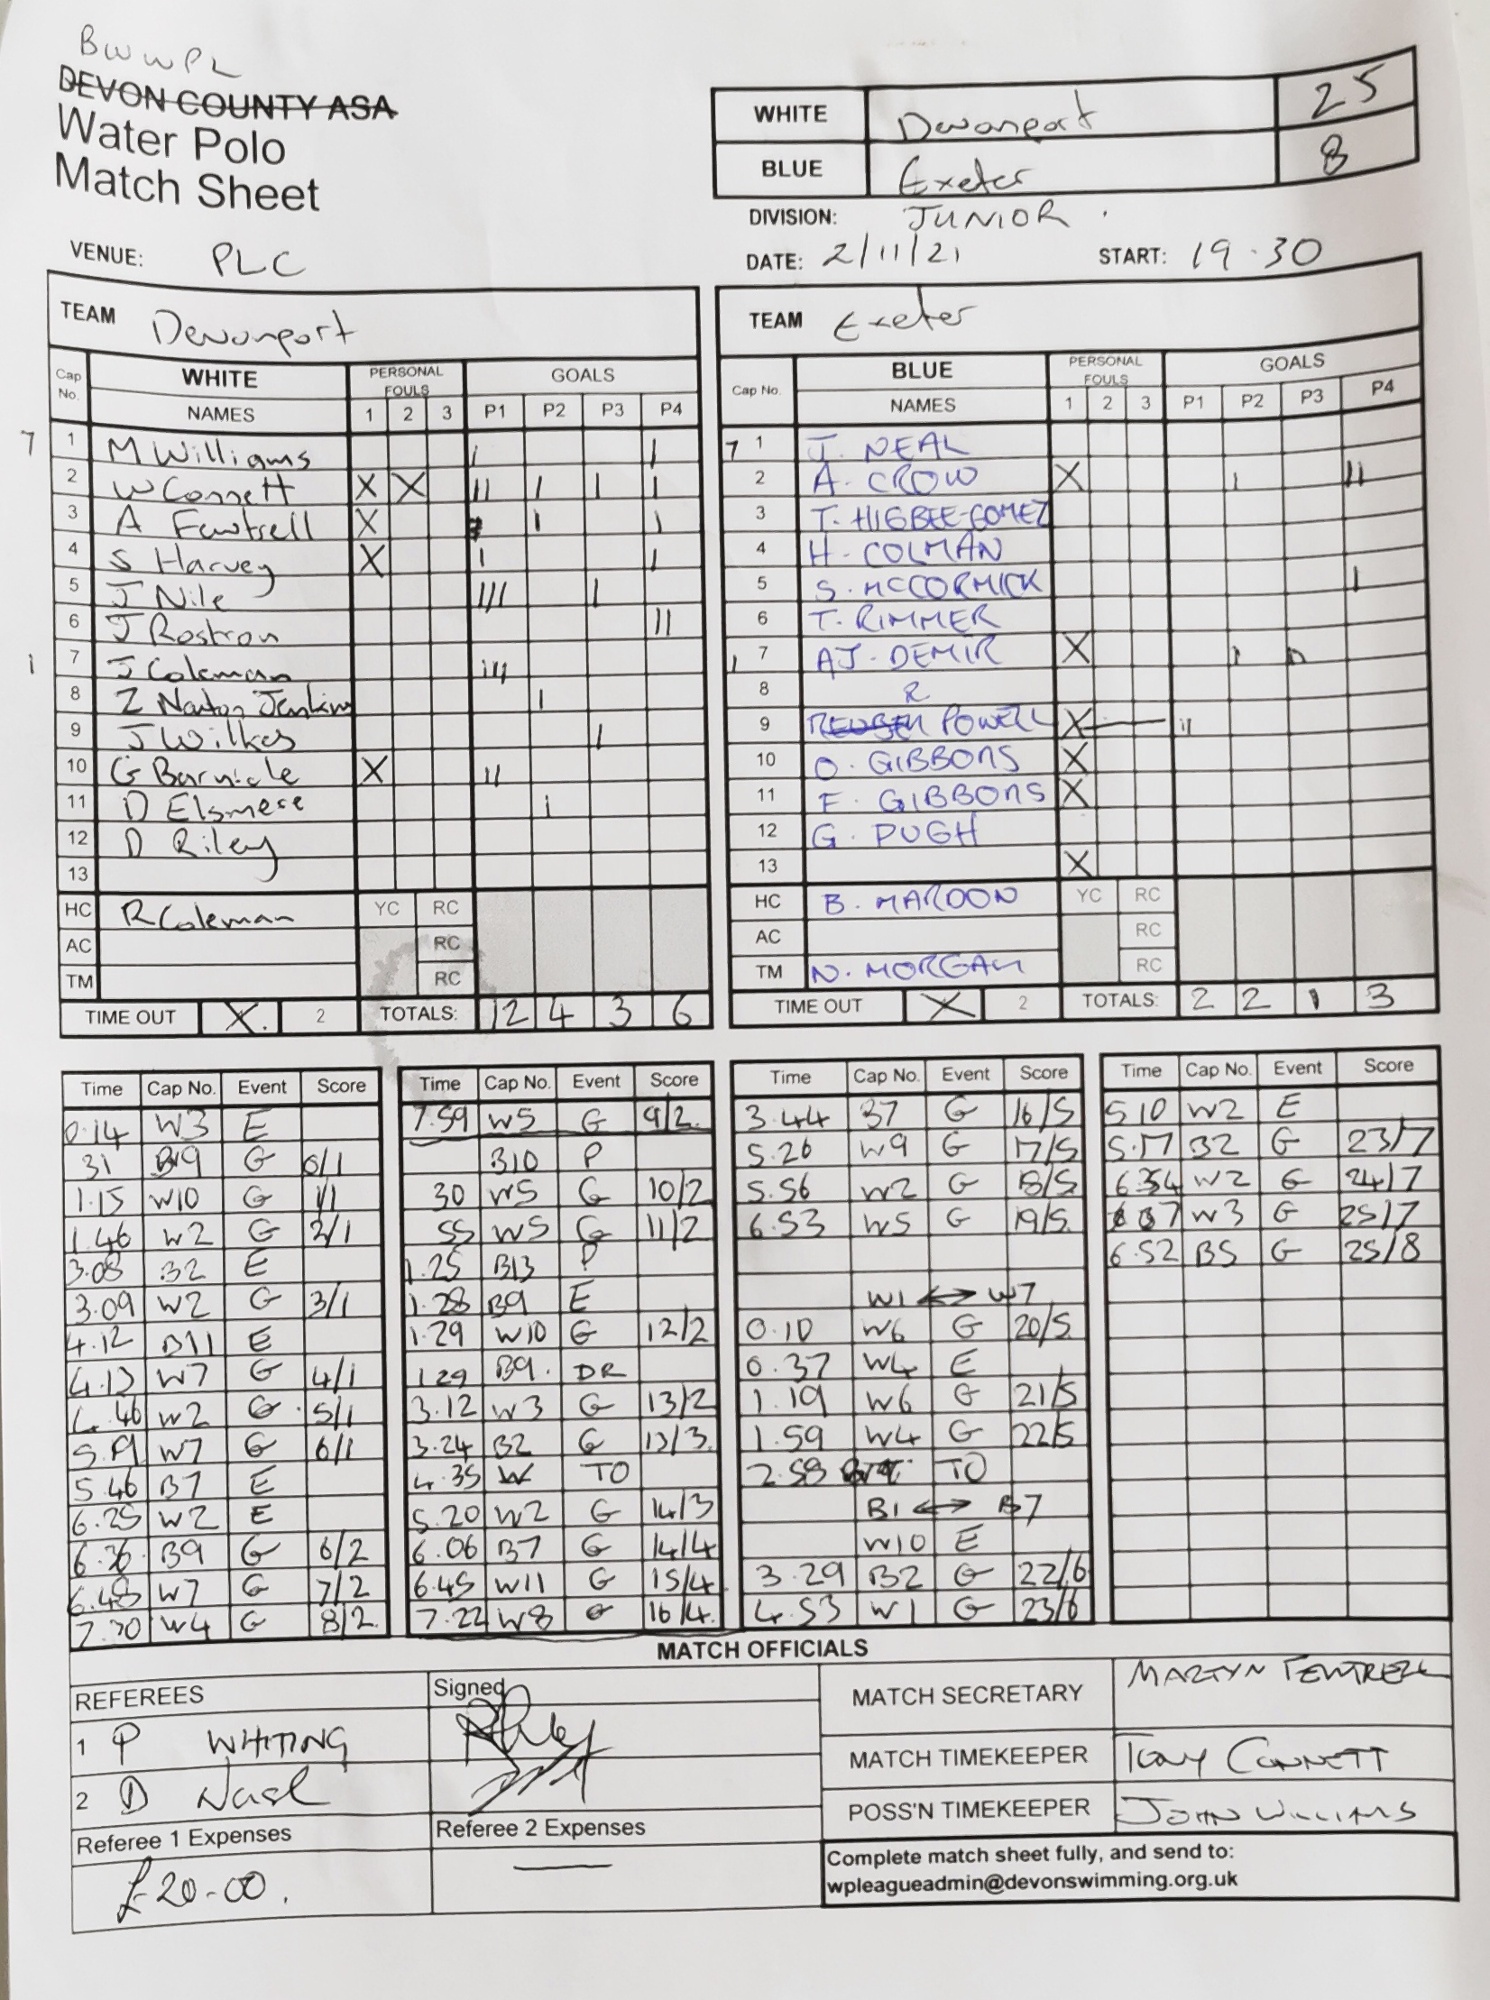 BWWPL
DEVON COUNTY ASA
Water Polo
Match Sheet
WHITE Devonport 25
BLUE Exeter 8
DIVISION: JUNIOR
VENUE: PLC DATE: 2/11/21 START: 19.30
TEAM Devonport
Cap No. WHITE PERSONAL FOULS GOALS
NAMES 1 2 3 P1 P2 P3 P4
7 1 M Williams I I
2 W Connett X X II I I I
3 A Fewtrell X I I
4 S Harvey X I I
5 J Nile III I
6 J Rostron II
1 7 J Coleman III
8 Z Narton Jenkins I
9 J Wilkes I
10 G Barnicle X II
11 D Elsmere I
12 D Riley
13
HC R Coleman YC RC
AC RC
TM RC
TIME OUT X 2 TOTALS: 12 4 3 6
TEAM Exeter
Cap No. BLUE PERSONAL FOULS GOALS
NAMES 1 2 3 P1 P2 P3 P4
7 1 J. NEAL
2 A. CROW X I II
3 T. HIGBEE-GOMEZ
4 H. COLMAN
5 S. MCCORMICK I
6 T. RIMMER
1 7 AJ. DEMIR X I
8
9 R REUBEN POWELL X II
10 O. GIBBONS X
11 F. GIBBONS X
12 G. PUGH
13 X
HC B. MAROON YC RC
AC RC
TM N. MORGAN RC
TIME OUT X 2 TOTALS: 2 2 1 3
Time Cap No. Event Score
0.14 W3 E
31 B9 G 0/1
1.15 W10 G 1/1
1.46 W2 G 2/1
3.08 B2 E
3.09 W2 G 3/1
4.12 B11 E
4.13 W7 G 4/1
4.46 W2 G 5/1
W7 G 6/1
5.46 B7 E
6.25 W2 E
6.36 B9 G 6/2
6.48 W7 G 7/2
7.30 W4 G 8/2
Time Cap No. Event Score
7.59 W5 G 9/2
B10 P
30 W5 G 10/2
55 W5 G 11/2
1.25 B13 P
1.28 B9 E
1.29 W10 G 12/2
1 29 B9. DR
3.12 W3 G 13/2
3.24 B2 G 13/3
4.35 W TO
5.20 W2 G 14/3
6.06 B7 G 14/4
6.45 W11 G 15/4
7.22 W8 G 16/4
Time Cap No. Event Score
3.44 B7 G 16/5
5.26 W9 G 17/5
5.56 W2 G 18/5
6.53 W5 G 19/5
W1 ↔ W7
0.10 W6 G 20/5
0.37 W4 E
1.19 W6 G 21/5
1.59 W4 G 22/5
2.58 TO
B1 ↔ B7
W10 E
3.29 B2 G 22/6
4.53 W1 G 23/6
Time Cap No. Event Score
5.10 W2 E
5.17 B2 G 23/7
6.34 W2 G 24/7
W3 G 25/7
6.52 B5 G 25/8
MATCH OFFICIALS
REFEREES Signed
1 P WHITING
2 D Nash
Referee 1 Expenses Referee 2 Expenses
£20-00. —
MATCH SECRETARY MARTYN FEWTRELL
MATCH TIMEKEEPER TONY CONNETT
POSS'N TIMEKEEPER JOHN WILLIAMS
Complete match sheet fully, and send to:
wpleagueadmin@devonswimming.org.uk